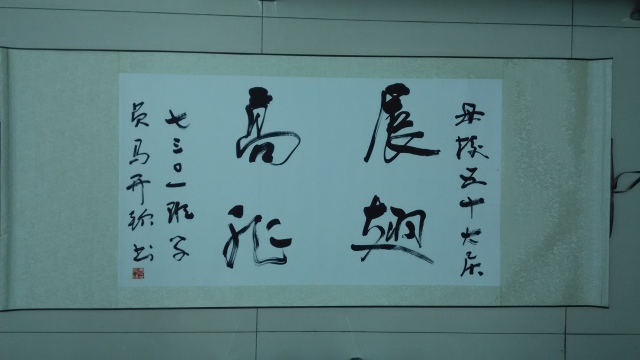 母校五十大庆
展翅
高飞
七三〇一班学
员马开书